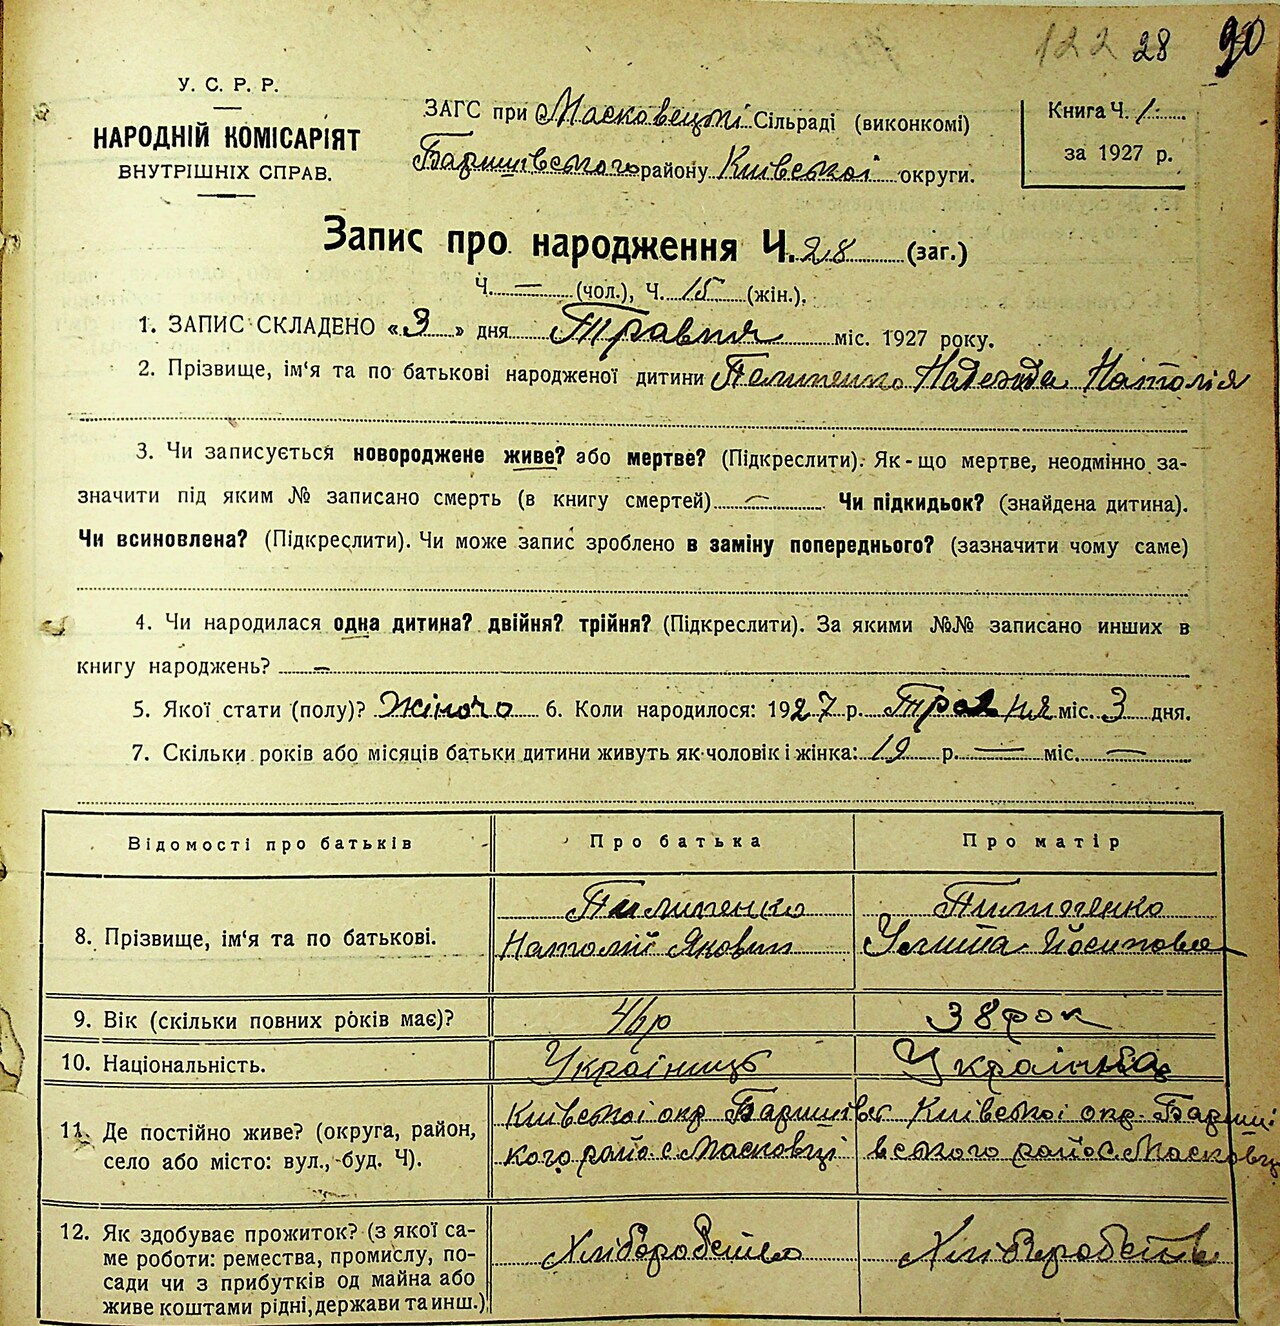 122 28 90
У. С. Р. Р.
НАРОДНІЙ КОМІСАРІЯТ
ВНУТРІШНІХ СПРАВ.
ЗАГС при Масковецькій Сільраді (виконкомі)
Баришівського району Київської округи.
Книга Ч. 1
за 1927 р.
Запис про народження Ч. 28 (заг.)
Ч. — (чол.), Ч. 15 (жін.).
1. ЗАПИС СКЛАДЕНО «3» дня Травня міс. 1927 року.
2. Прізвище, ім'я та по батькові народженої дитини Пилипенко Надежда Натолія
3. Чи записується новороджене живе? або мертве? (Підкреслити). Як-що мертве, неодмінно за-
значити під яким № записано смерть (в книгу смертей) — Чи підкидьок? (знайдена дитина).
Чи всиновлена? (Підкреслити). Чи може запис зроблено в заміну попереднього? (зазначити чому саме)
4. Чи народилася одна дитина? двійня? трійня? (Підкреслити). За якими №№ записано инших в
книгу народжень? —
5. Якої стати (полу)? Жіночо 6. Коли народилося: 1927 р. Травня міс. 3 дня.
7. Скільки років або місяців батьки дитини живуть як чоловік і жінка: 19 р. — міс. —
Відомості про батьків Про батька Про матір
8. Прізвище, ім'я та по батькові.
Пилипенко
Натолій Якович
Пилипенко
Улита Йосипова
9. Вік (скільки повних років має)? 38 рок
10. Національність. Українець Українка
11. Де постійно живе? (округа, район,
село або місто: вул., буд. Ч).
Київської окр Баришівс
кого райо. с. Масковці
Київської окр. Бариші
вського райо с. Масковці
12. Як здобуває прожиток? (з якої са-
ме роботи: ремества, промислу, по-
сади чи з прибутків од майна або
живе коштами рідні, держави та инш.)
Хліборобство
Хліборобств